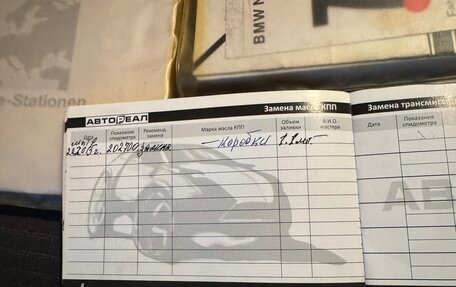 BMW N
e-Stationen
АВТОРЕАЛ
Замена масла КПП
Дата
Показания спидометра
Рекоменд. замена
Марка масла КПП
Объем заливки
Ф.И.О. мастера
202700 замена — коробки 1.1 м.
Замена трансмисс
Дата
Показания спидометра
АВ